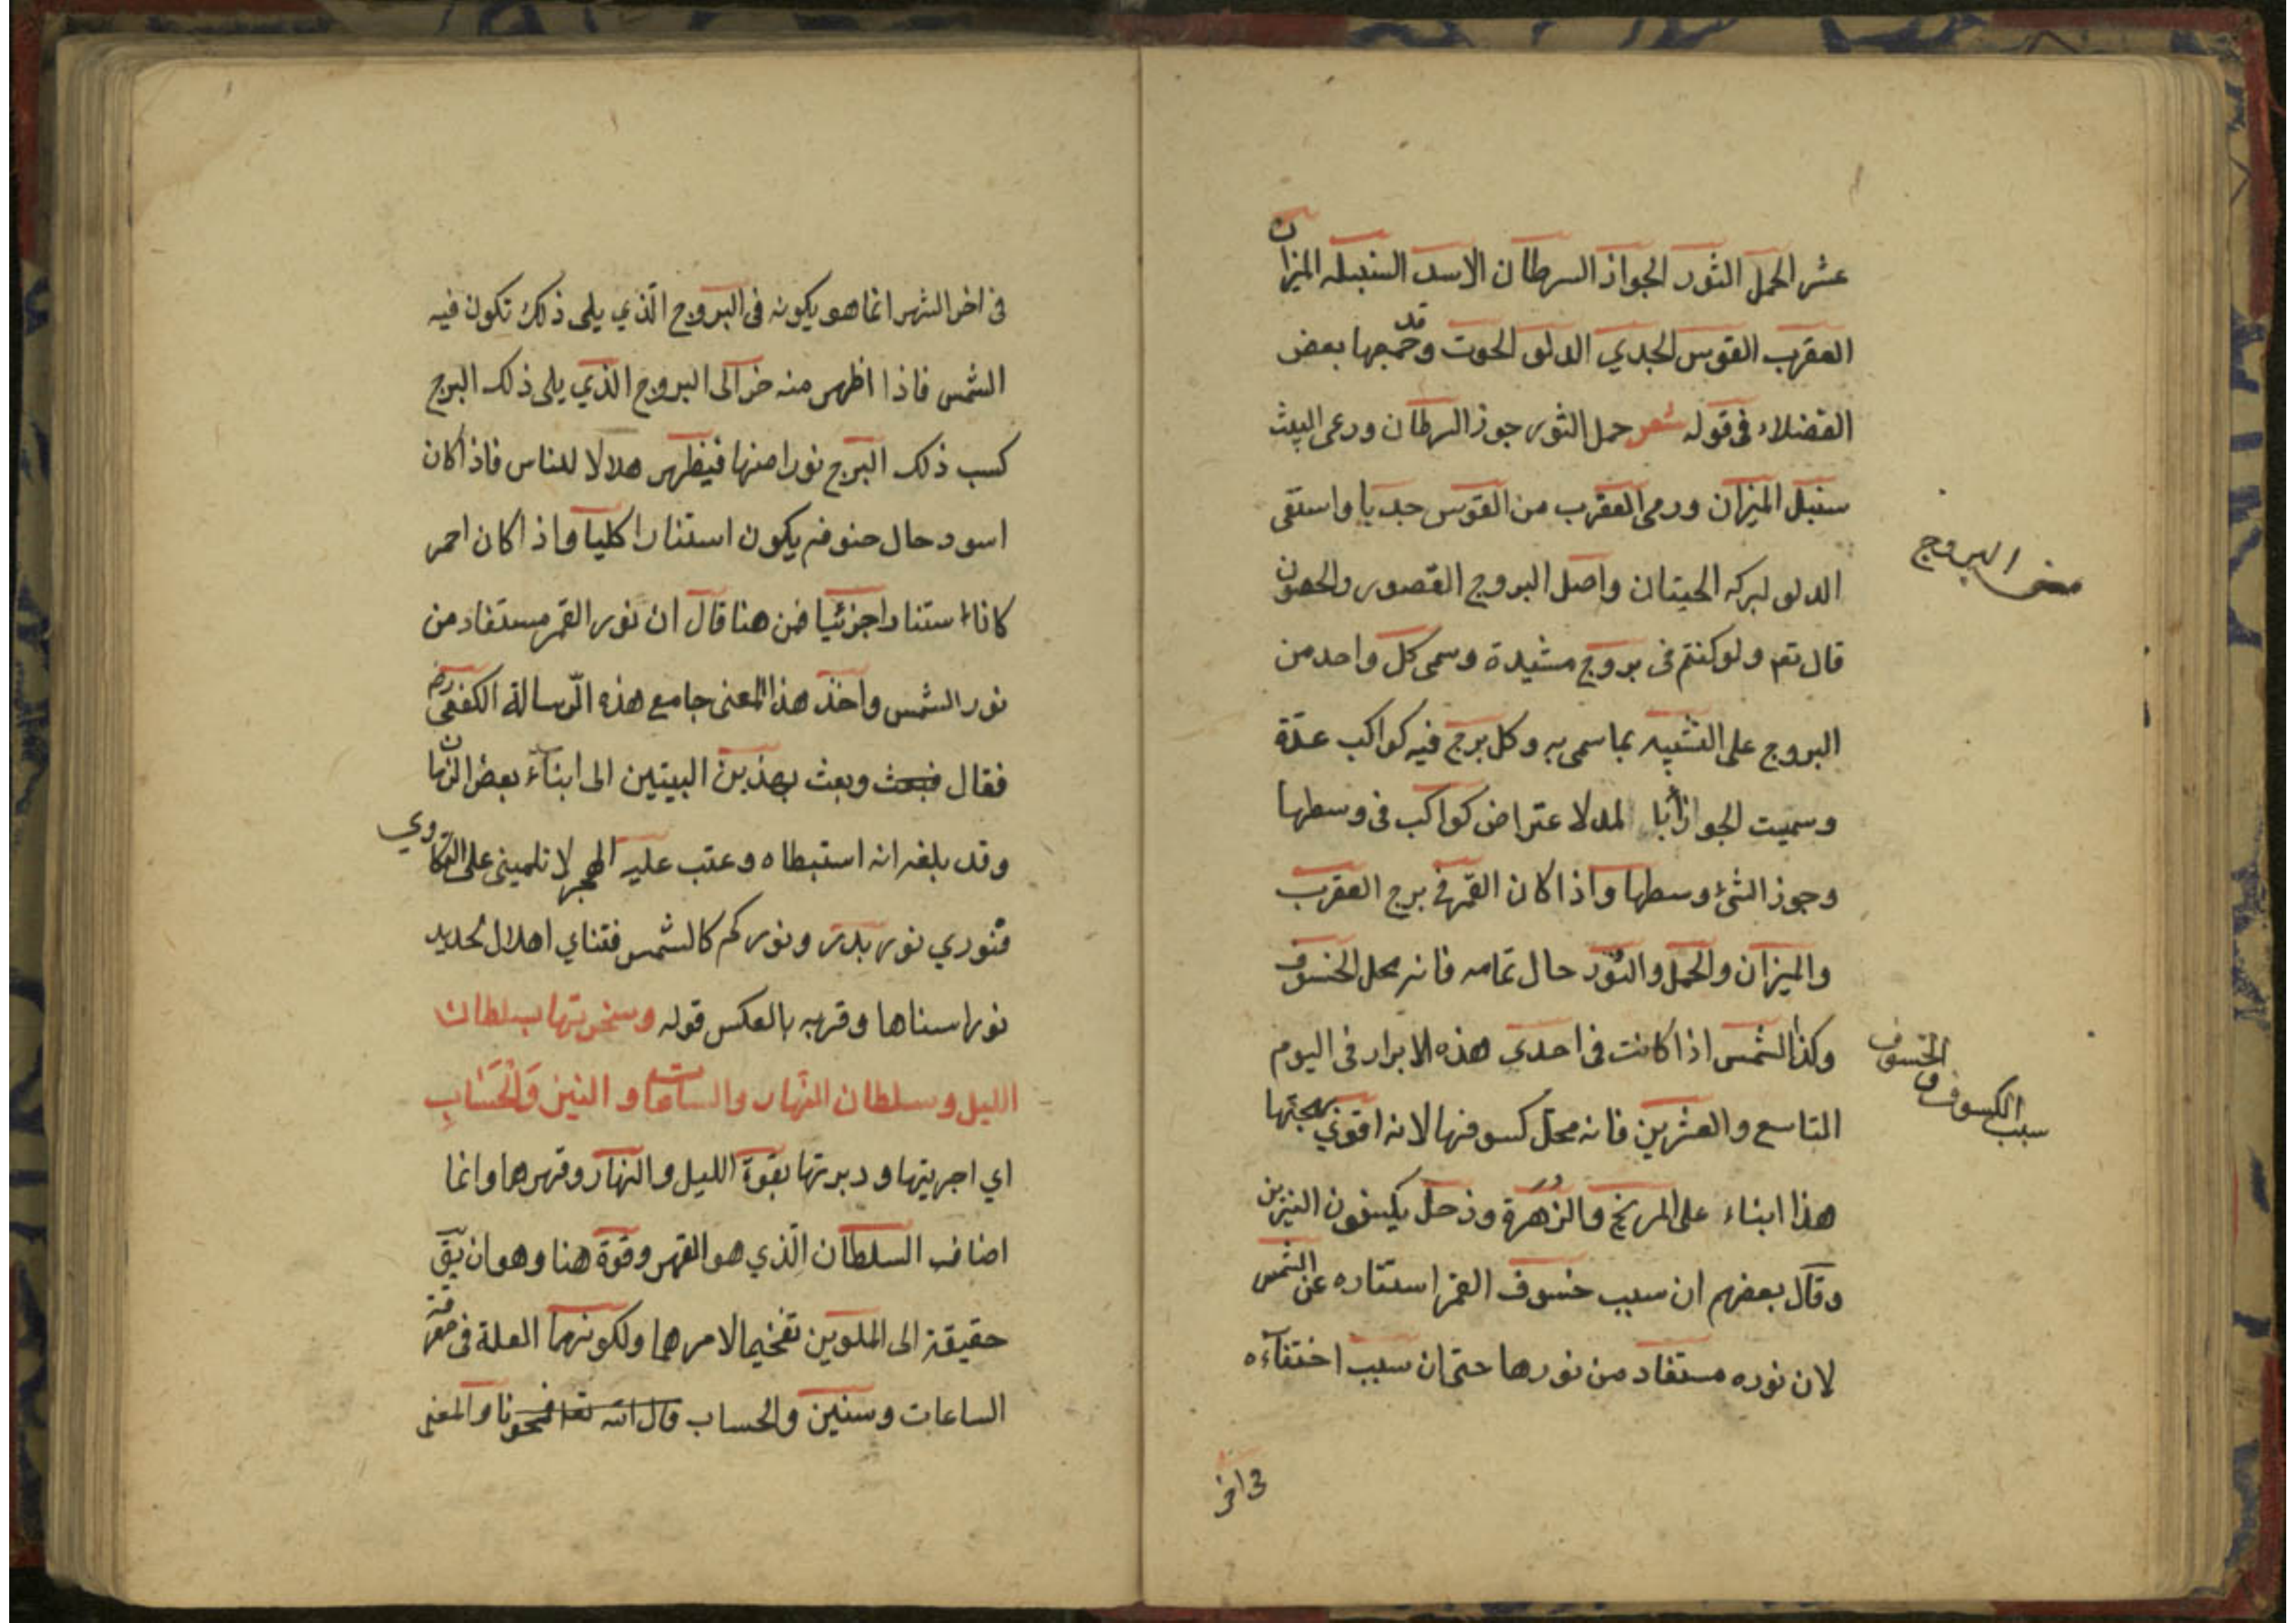 عشر الحمل الثور الجواز السرطان الاسد السنبله الميزان
العقرب القوس الجدي الدلو الحوت وقد جمعها بعض
الفضلاء فى قوله شعر حمل الثور جوز السرطان ورعى الليث
سنبل الميزان ورمى العقرب من القوس جديا واستقى
الدلو لبركه الحيتان واصل البروج القصور والحصون
معنى البروج
قال تعم ولو كنتم فى بروج مشيدة وسمى كل واحد من
البروج على التشبيه بما سمى به وكل برج فيه كواكب عدّة
وسميت الجواز لاعتراض كواكب فى وسطها
وجوز الشئ وسطها واذا كان القمر فى برج العقرب
والميزان والحمل والثور حال تمامه فانه محل الخسوف
وكذا الشمس اذا كانت فى احدى هذه الابرار فى اليوم
سبب الكسوف والخسوف
التاسع والعشرين فانه محل كسوفها لانه اقوى بهجتها
هذا ابناء على المريخ والزهرة وزحل يكسفون النيرين
وقال بعضهم ان سبب خسوف القمر استتاره عن الشمس
لان نوره مستفاد من نورها حتى ان سبب اختفآءه
فى اخر
فى اخر الشهر انما هو يكونه فى البروج الّذي يلى ذلك تكون فيه
الشمس فاذا اظهر منه خر الى البروج الذي يلى ذلك البرج
كسب ذلك البرج نورا منها فيظهر هلالا للناس فاذا كان
اسود حال خسوفه يكون استنارا كليا واذا كان احمر
كانا استنارا جزئيا فمن هنا قال ان نور القمر مستفاد من
نور الشمس واخذ هذا المعنى جامع هذه الرّسالة الكفعمى رض
فقال فبعث وبعث بهذين البيتين الى ابنآء بعض الزمان
وقد بلغه انه استبطاه وعتب عليه الهجر لا تلمينى على
فنوري نور بدر ونوركم كالشمس فتناي اهلال يحديد
نورا سناها وقربه بالعكس قوله وسخرتها بسلطان
الليل وسلطان النهار والساعات و النين وَالْحَسَابِ
اي اجريتها ودبرتها بقوة الليل والنهار وقهرها وانما
اضاف السلطان الّذي هو القهر وقوة هنا وهو ان يّق
حقيقة الى الملوين تفخيما لامرهما ولكونهما العلة فى معرفة
الساعات وسنين والحساب قال الله تعا فمحونا والمعنى